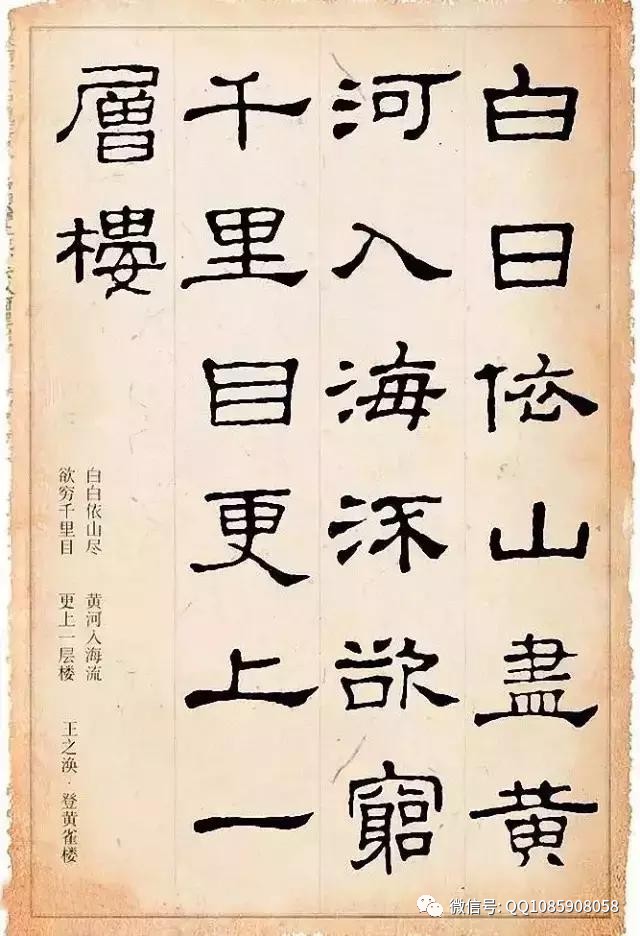 白日依山盡黄
河入海流欲窮
千里目更上一
層樓
白白依山尽 黄河入海流
欲穷千里目 更上一层楼 王之涣·登黄雀楼
微信号: QQ1085908058